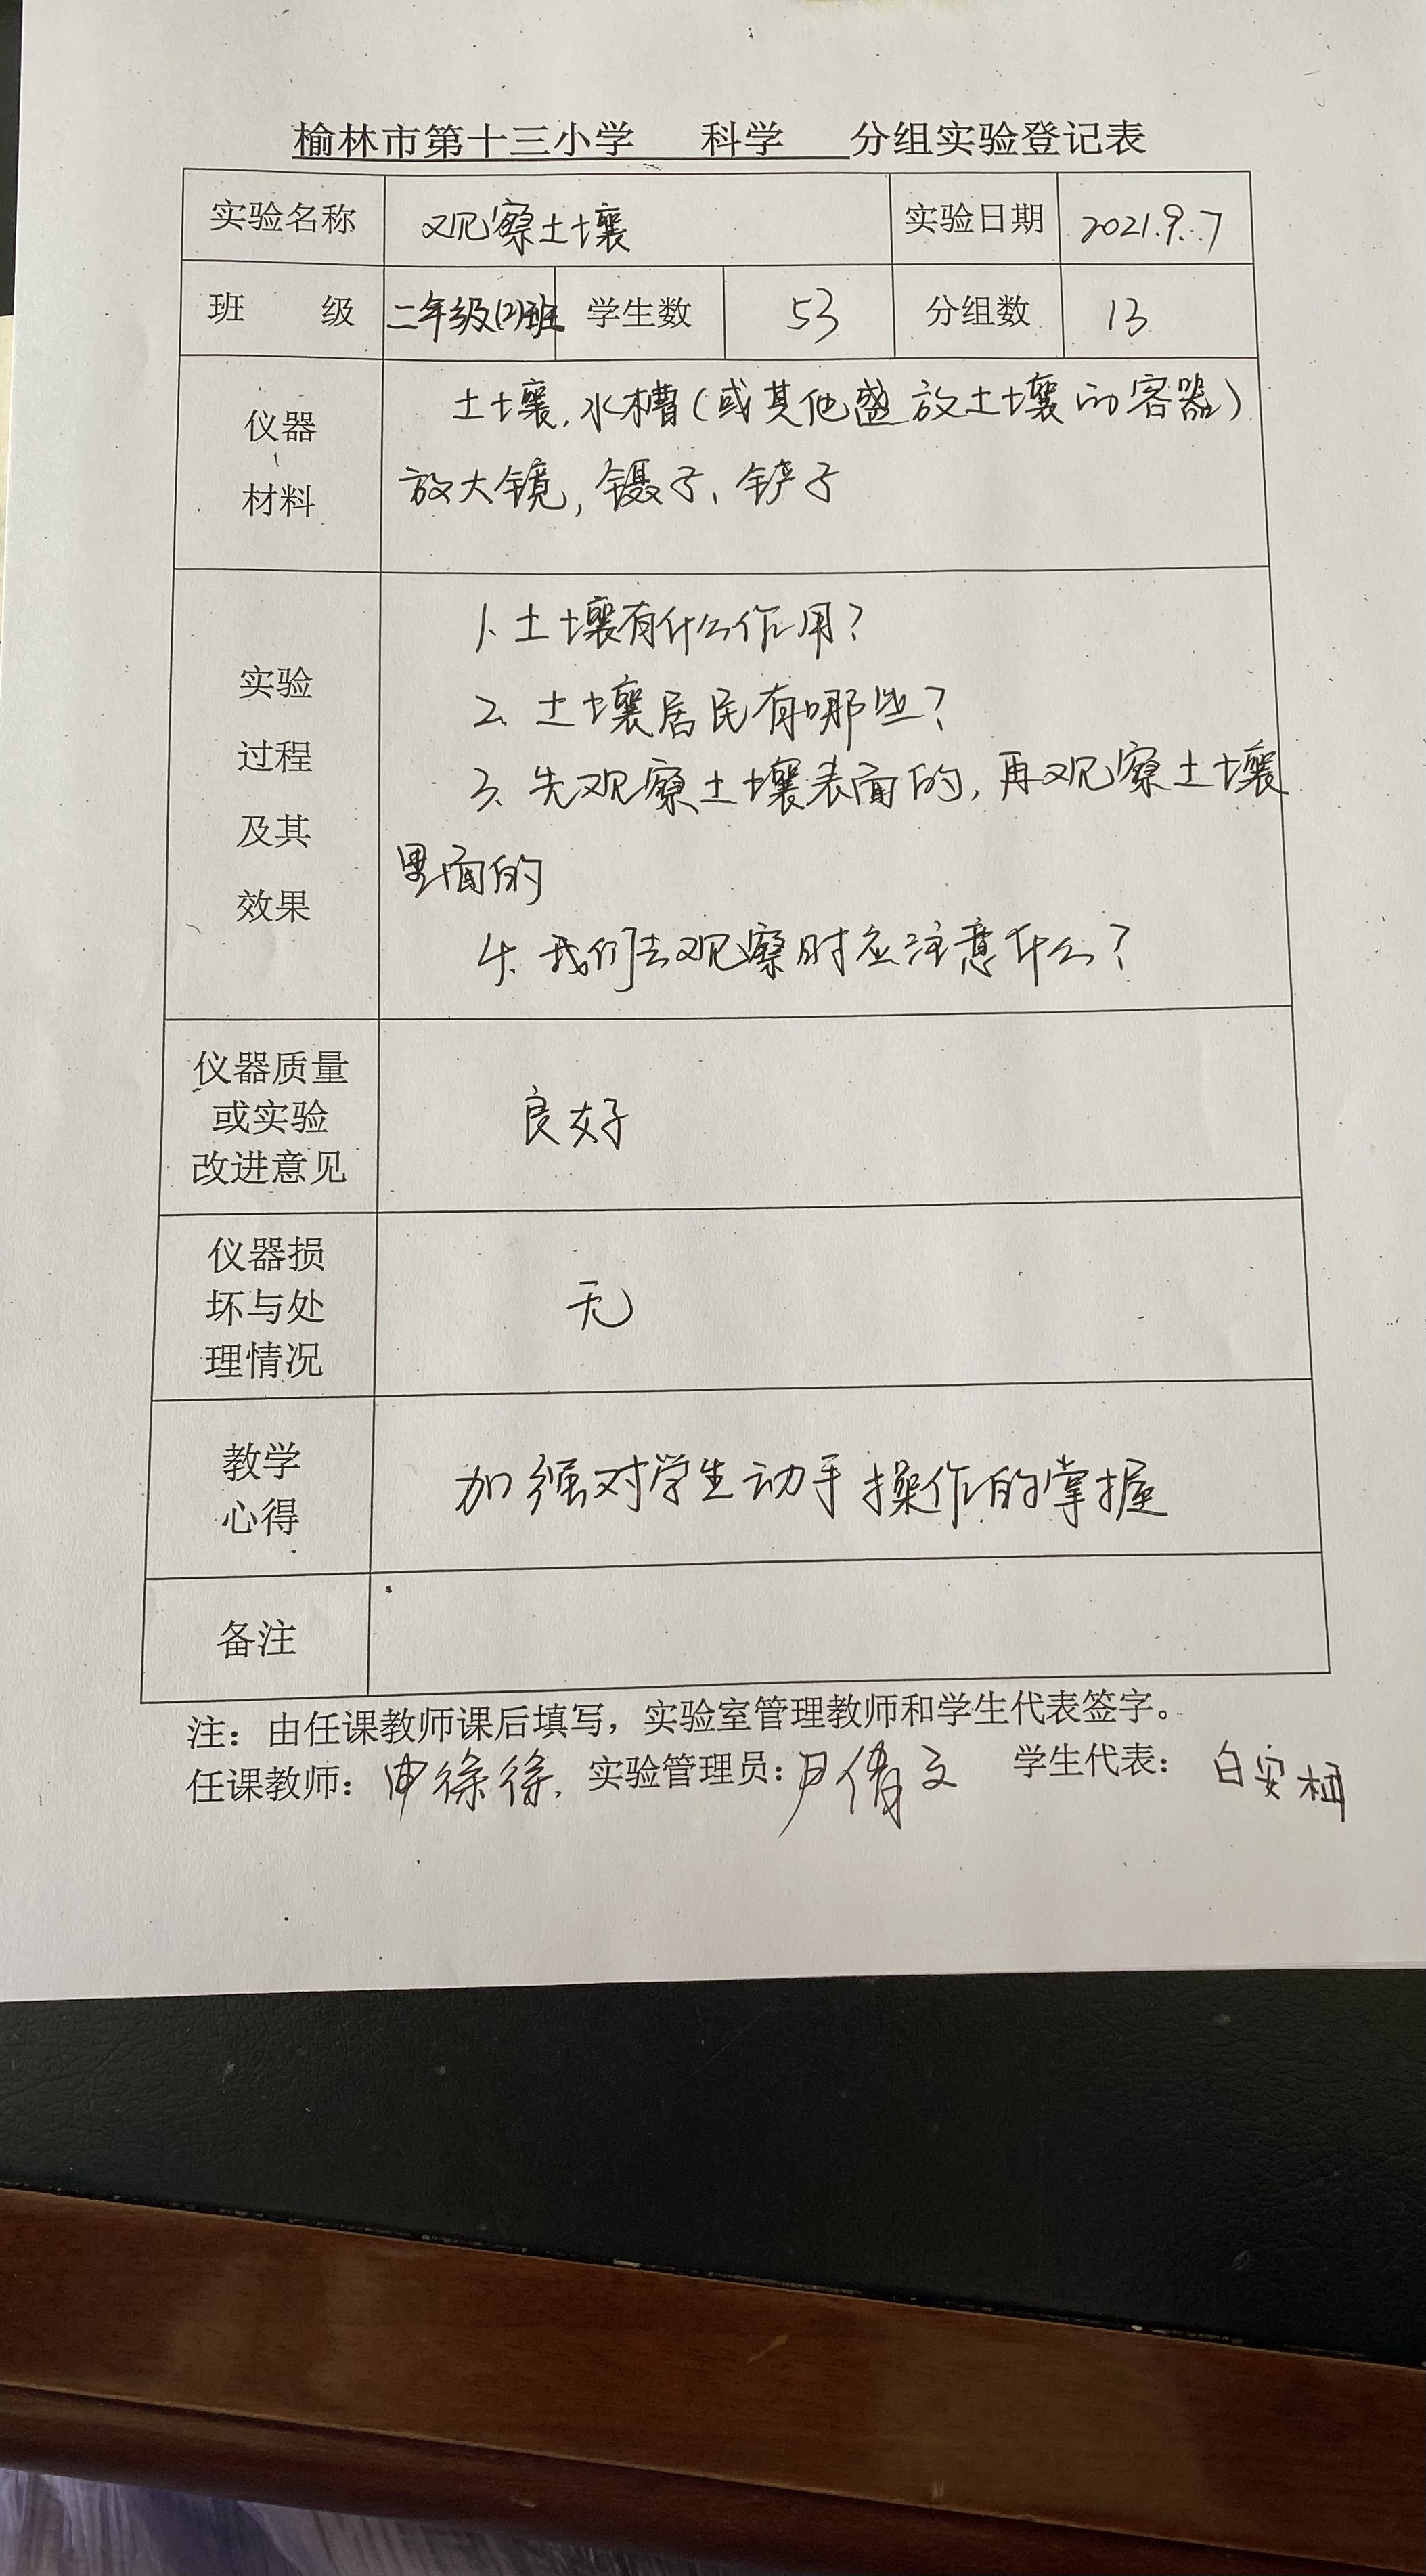 榆林市第十三小学 科学 分组实验登记表
实验名称 观察土壤 实验日期 2021.9.7
班 级 二年级(2)班 学生数 53 分组数 13
仪器
材料
土壤,水槽(或其他盛放土壤的容器)
放大镜,镊子、铲子
实验
过程
及其
效果
1、土壤有什么作用?
2、土壤居民有哪些?
3、先观察土壤表面的,再观察土壤
里面的
4、我们去观察时应注意什么?
仪器质量
或实验
改进意见
良好
仪器损
坏与处
理情况
无
教学
心得
加强对学生动手操作的掌握
备注
注:由任课教师课后填写,实验室管理教师和学生代表签字。
任课教师: 实验管理员:尹倩文 学生代表:白安柚